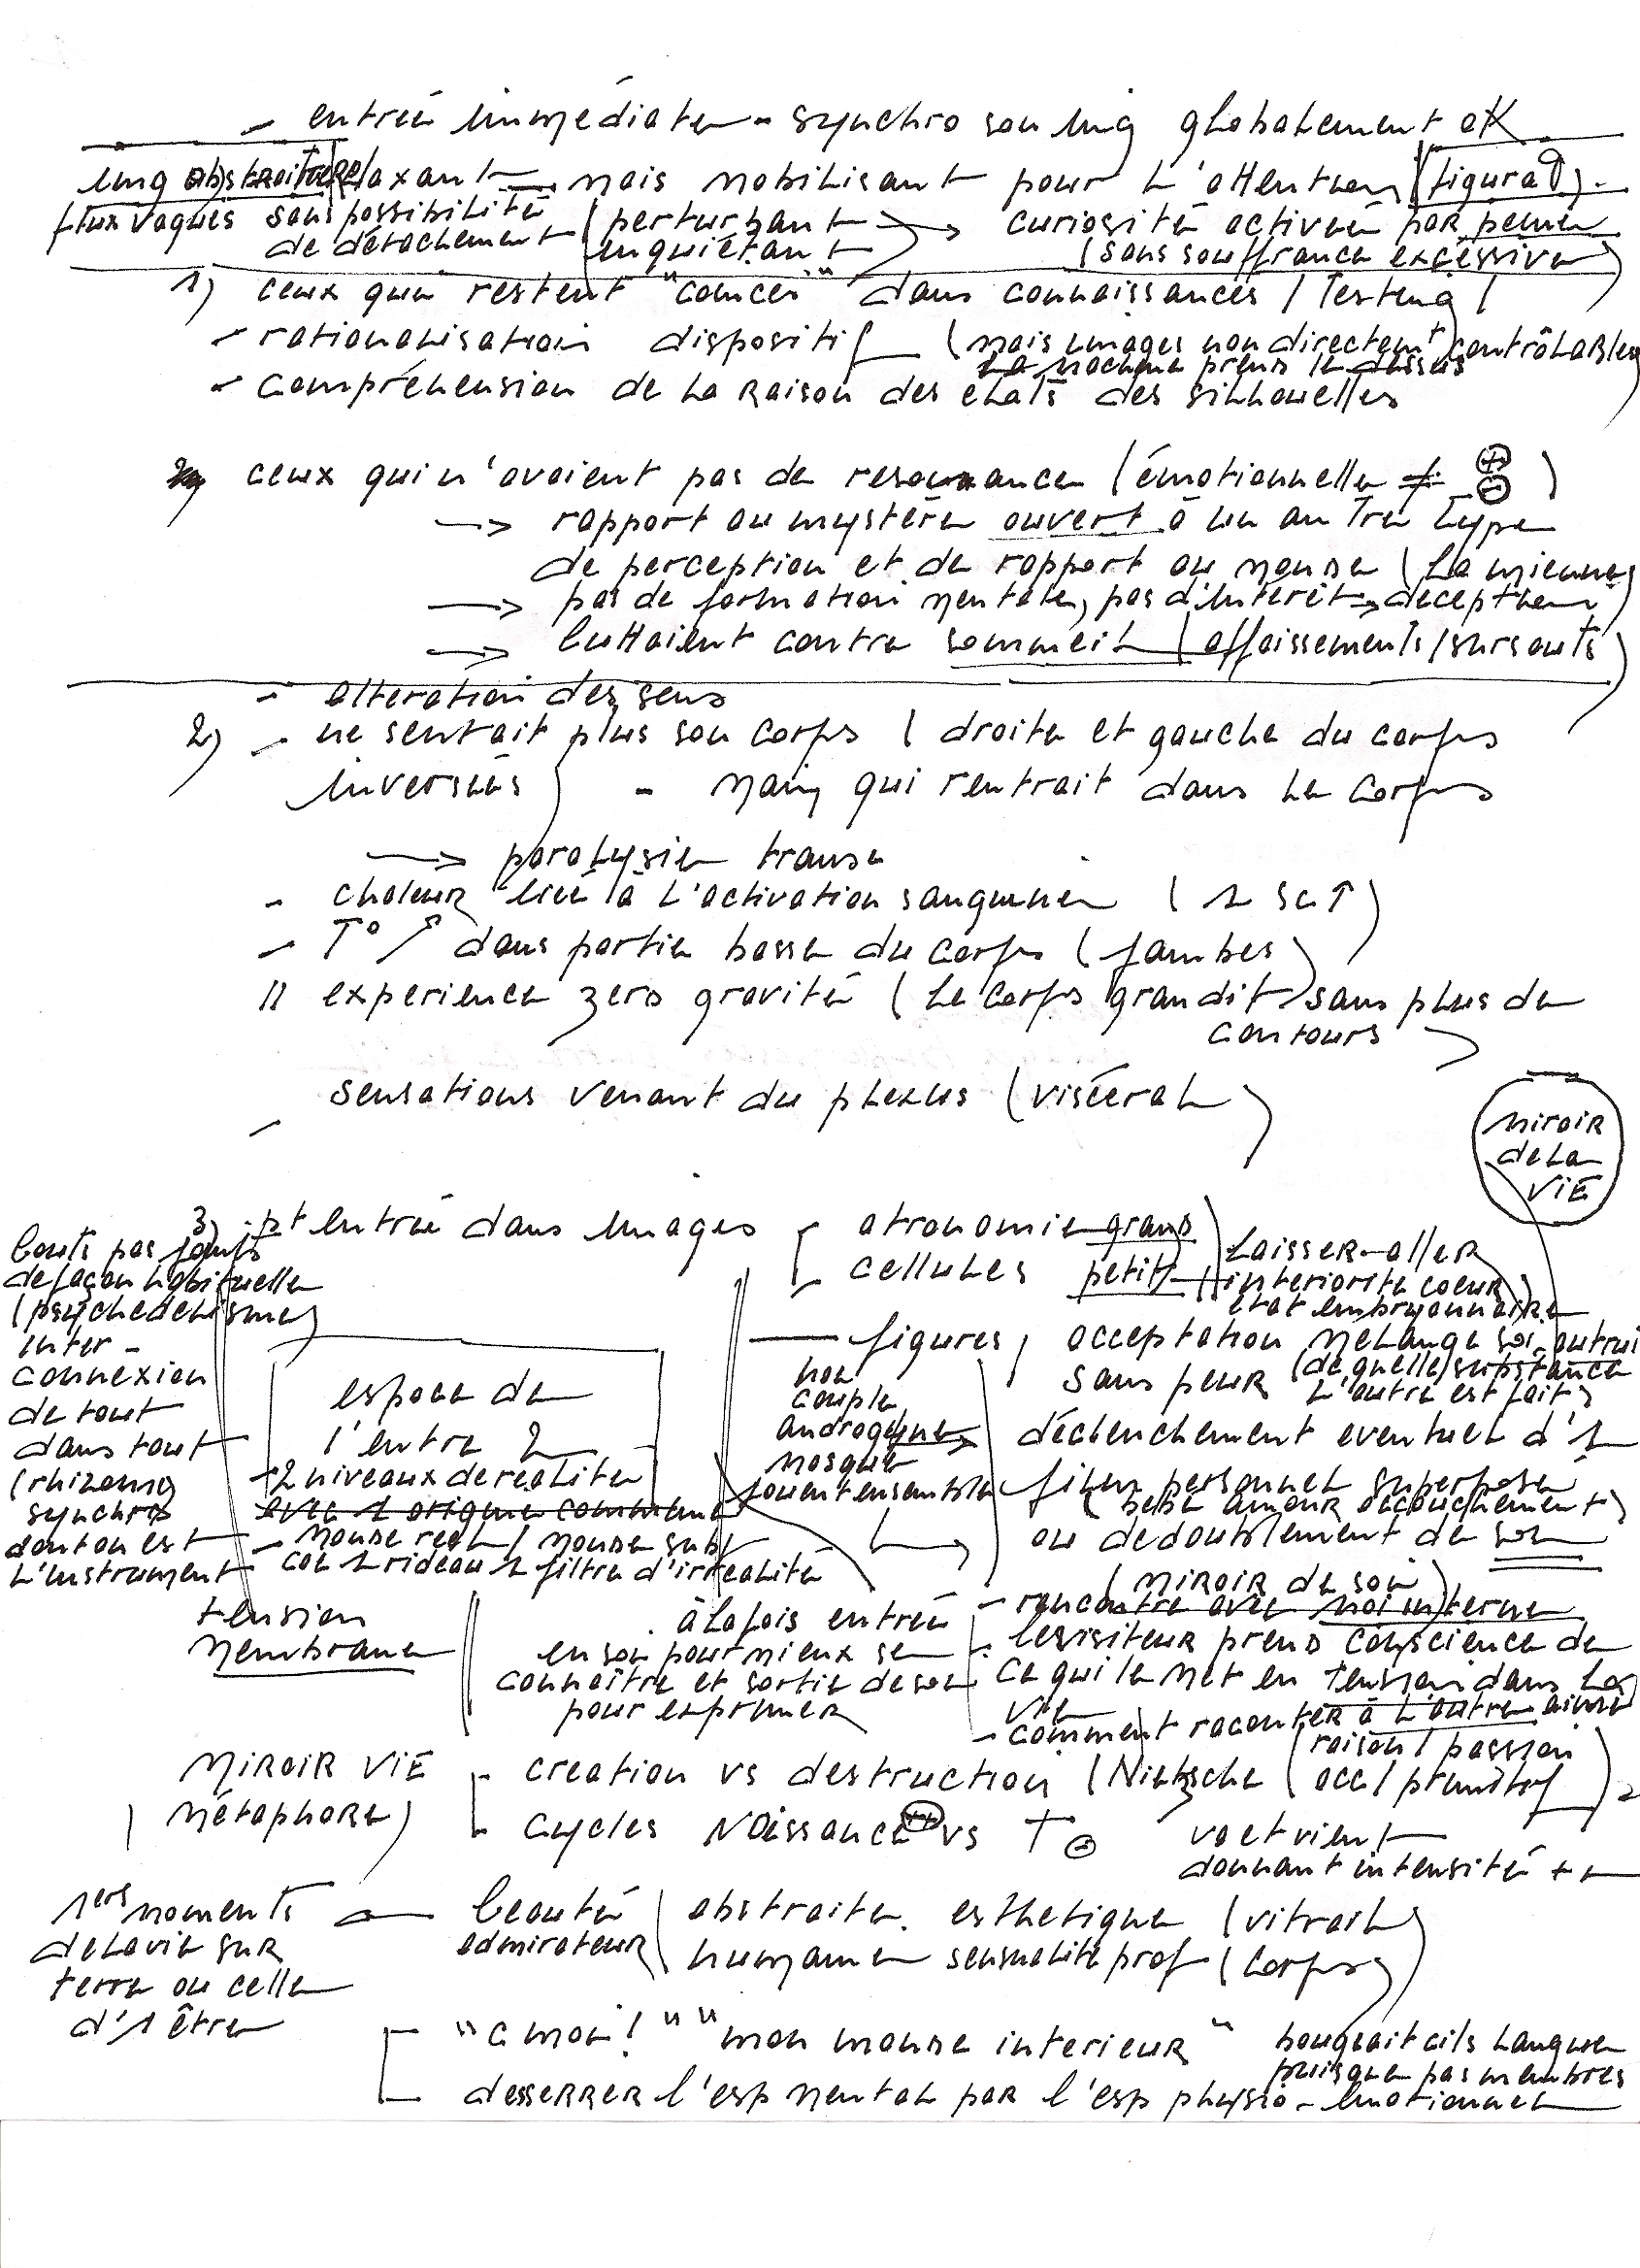 - entrée immédiate - synchro son img globalement ok
img abstraite relaxant - mais mobilisant pour l'attention (figurad).
flux vagues sans possibilité de détachement
(perturbant inquiétant) → curiosité activée par peine
(sans souffrance excessive)
1) ceux qui restent "coincés" dans connaissances / Testing /
- rationalisation dispositif (mais images non directemt contrôlables
la machine prend le dessus
- compréhension de la raison des états des silhouettes
ceux qui n'avaient pas de resonnance (émotionnelle ≠ + -)
→ rapport au mystère ouvert à un autre type
de perception et de rapport au monde (la mienne)
→ pas de formation mentale, pas d'intérêt → deception
→ luttaient contre sommeil (affaissements / sursauts)
- alteration des sens
2) - ne sentait plus son corps (droite et gauche du corps
inversées) - main qui rentrait dans le corps
→ paralysie transe
- chaleur liée à l'activation sanguine
- T° ↗ dans partie basse du corps (jambes)
// experience zero gravité (le corps grandit sans plus de
contours)
- sensations venant du plexus (viscéral)
miroir
de la
VIE
3) pt entrée dans images
- atronomie grand
- cellules petit
Laisser-aller
interiorité coeur
état embryonnaire
bouts pas joints
de façon habituelle
(psychedelisme)
inter -
connexion
de tout
dans tout
(rhizome)
synchro
dont on est
l'instrument
espace de
l'entre 2
- 2 niveaux de réalité
avec 1 origine commune
- monde reel / monde subj
1 rideau 1 filtre d'irréalité
figures, acceptation mélange soi autrui
sans peur (de quelle substance
l'autre est fait)
non
couple
androgyne
masque
jouent ensemble
→ déclenchement eventuel d'1
film personnel superposé
(bébé amour accouchement)
→ ou dedoublement de soi
(miroir de soi)
tension
membrane
à la fois entrée
en soi pour mieux se
connaître et sortie de soi
pour exprimer
- rencontre avec moi interne
- le visiteur prend conscience de
ce qui le met en tension dans la
vie
- comment raconter à l'autre
MIROIR VIE
(métaphore)
- creation vs destruction (Nietzsche (raison / passion
- cycles Naissance vs †
va et vient
donnant intensité + -
1ers moments
de la vie sur
terre ou celle
d'1 être
- beauté
admirateur
abstraite esthetique (vitrail)
humaine sensualité prof (corps)
- "c moi!" "mon monde interieur"
bougeait cils langue
puisque pas membres
- desserrer l'esp mental par l'esp physio-émotionnel